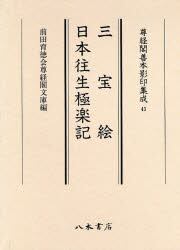 尊経閣善本影印集成
41
三宝絵
日本往生極楽記
前田育徳会尊経閣文庫編
八木書店